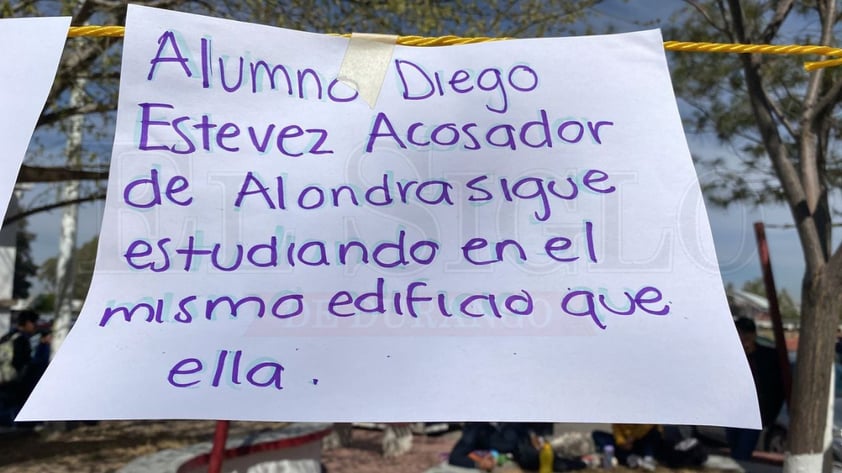 Alumno Diego
Estevez Acosador
de Alondra sigue
estudiando en el
mismo edificio que
ella.
EL SIGLO
DE DURANGO